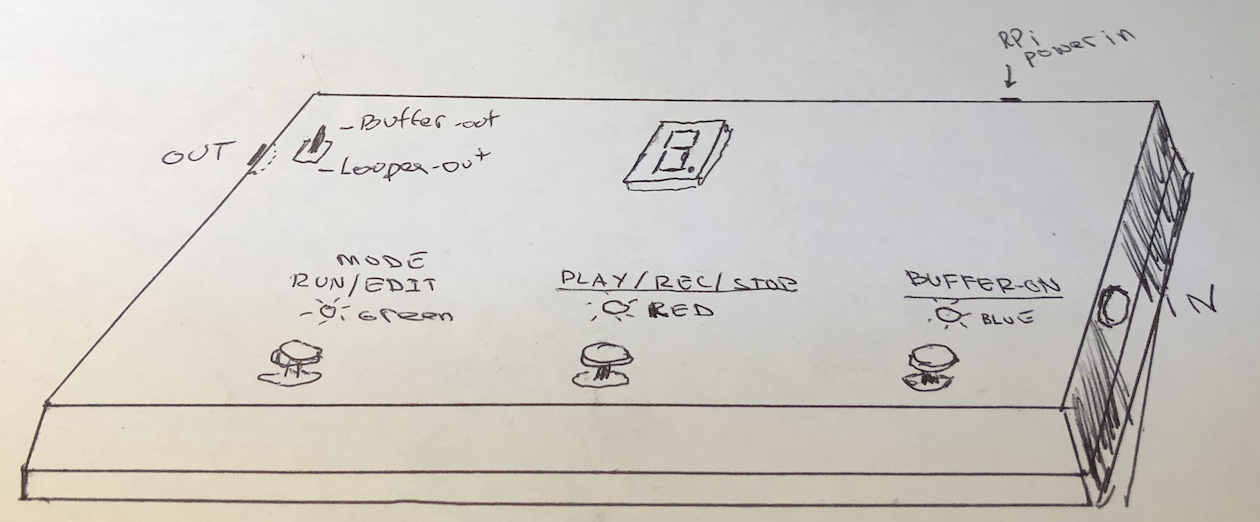 RPi
power in
OUT
-Buffer-out
-Looper-out
8.
MODE
RUN/EDIT
Green
PLAY/REC/STOP
RED
BUFFER-ON
BLUE
IN